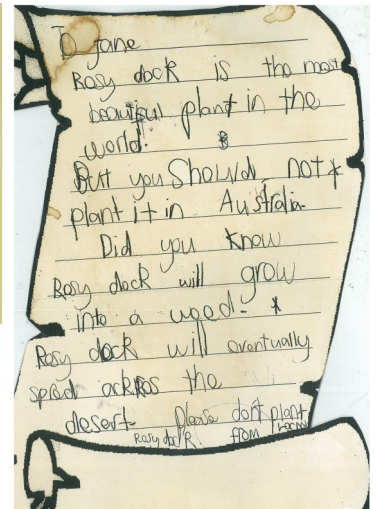 To Jane
Rosy dock is the most
beautiful plant in the
world.
But you Should not
plant it in Australia.
Did you know
Rosy dock will grow
into a weed.
Rosy dock will eventually
spred ackros the
desert. Please don't plant
Rosy dock from